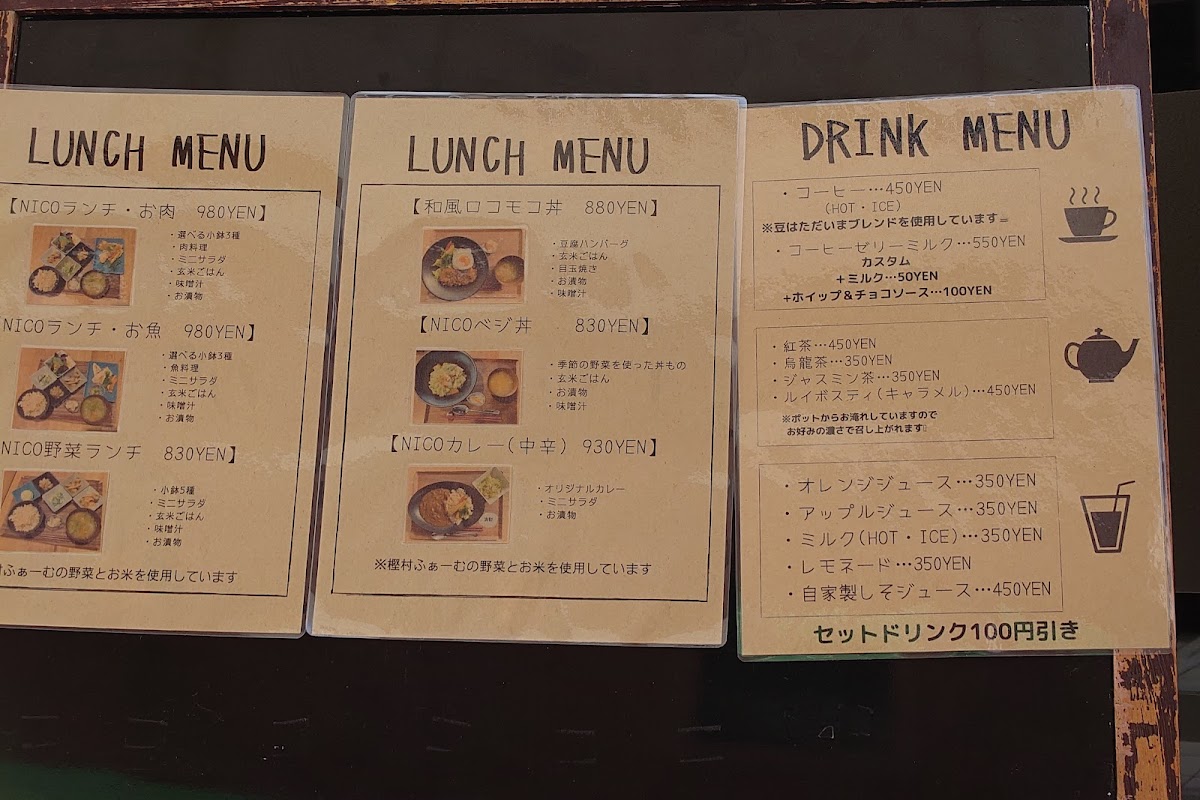 LUNCH MENU
【NICOランチ・お肉 980YEN】
・選べる小鉢3種
・肉料理
・ミニサラダ
・玄米ごはん
・味噌汁
・お漬物
NICOランチ・お魚 980YEN】
・選べる小鉢3種
・魚料理
・ミニサラダ
・玄米ごはん
・味噌汁
・お漬物
NICO野菜ランチ 830YEN】
・小鉢5種
・ミニサラダ
・玄米ごはん
・味噌汁
・お漬物
村ふぁーむの野菜とお米を使用しています
LUNCH MENU
【和風ロコモコ丼 880YEN】
・豆腐ハンバーグ
・玄米ごはん
・目玉焼き
・お漬物
・味噌汁
【NICOベジ丼 830YEN】
・季節の野菜を使った丼もの
・玄米ごはん
・お漬物
・味噌汁
【NICOカレー(中辛) 930YEN】
・オリジナルカレー
・ミニサラダ
・お漬物
※樫村ふぁーむの野菜とお米を使用しています
DRINK MENU
・コーヒー…450YEN
(HOT・ICE)
※豆はただいまブレンドを使用しています
・コーヒーゼリーミルク…550YEN
カスタム
+ミルク…50YEN
+ホイップ&チョコソース…100YEN
・紅茶…450YEN
・烏龍茶…350YEN
・ジャスミン茶…350YEN
・ルイボスティ(キャラメル)…450YEN
※ポットからお淹れしていますので
お好みの濃さで召し上がれます
・オレンジジュース…350YEN
・アップルジュース…350YEN
・ミルク(HOT・ICE)…350YEN
・レモネード…350YEN
・自家製しそジュース…450YEN
セットドリンク100円引き